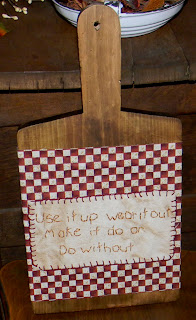 Use it up wear it out
Make it do or
Do without